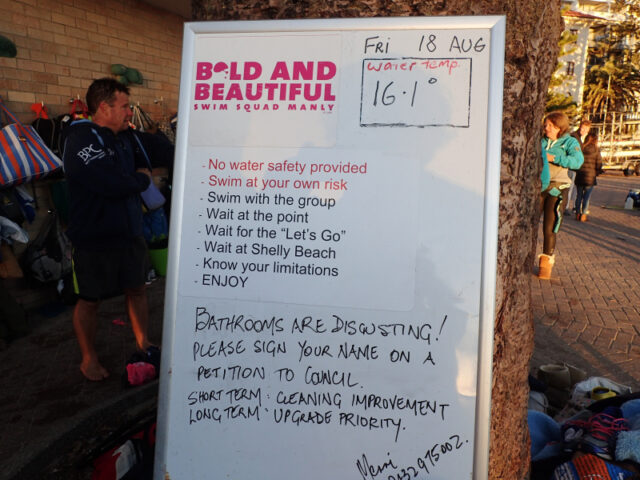 BOLD AND
BEAUTIFUL
SWIM SQUAD MANLY
FRI 18 AUG
Water temp.
16.1°
- No water safety provided
- Swim at your own risk
- Swim with the group
- Wait at the point
- Wait for the "Let's Go"
- Wait at Shelly Beach
- Know your limitations
- ENJOY
BATHROOMS ARE DISGUSTING!
PLEASE SIGN YOUR NAME ON A
PETITION TO COUNCIL.
SHORT TERM : CLEANING IMPROVEMENT
LONG TERM : UPGRADE PRIORITY.
BPC